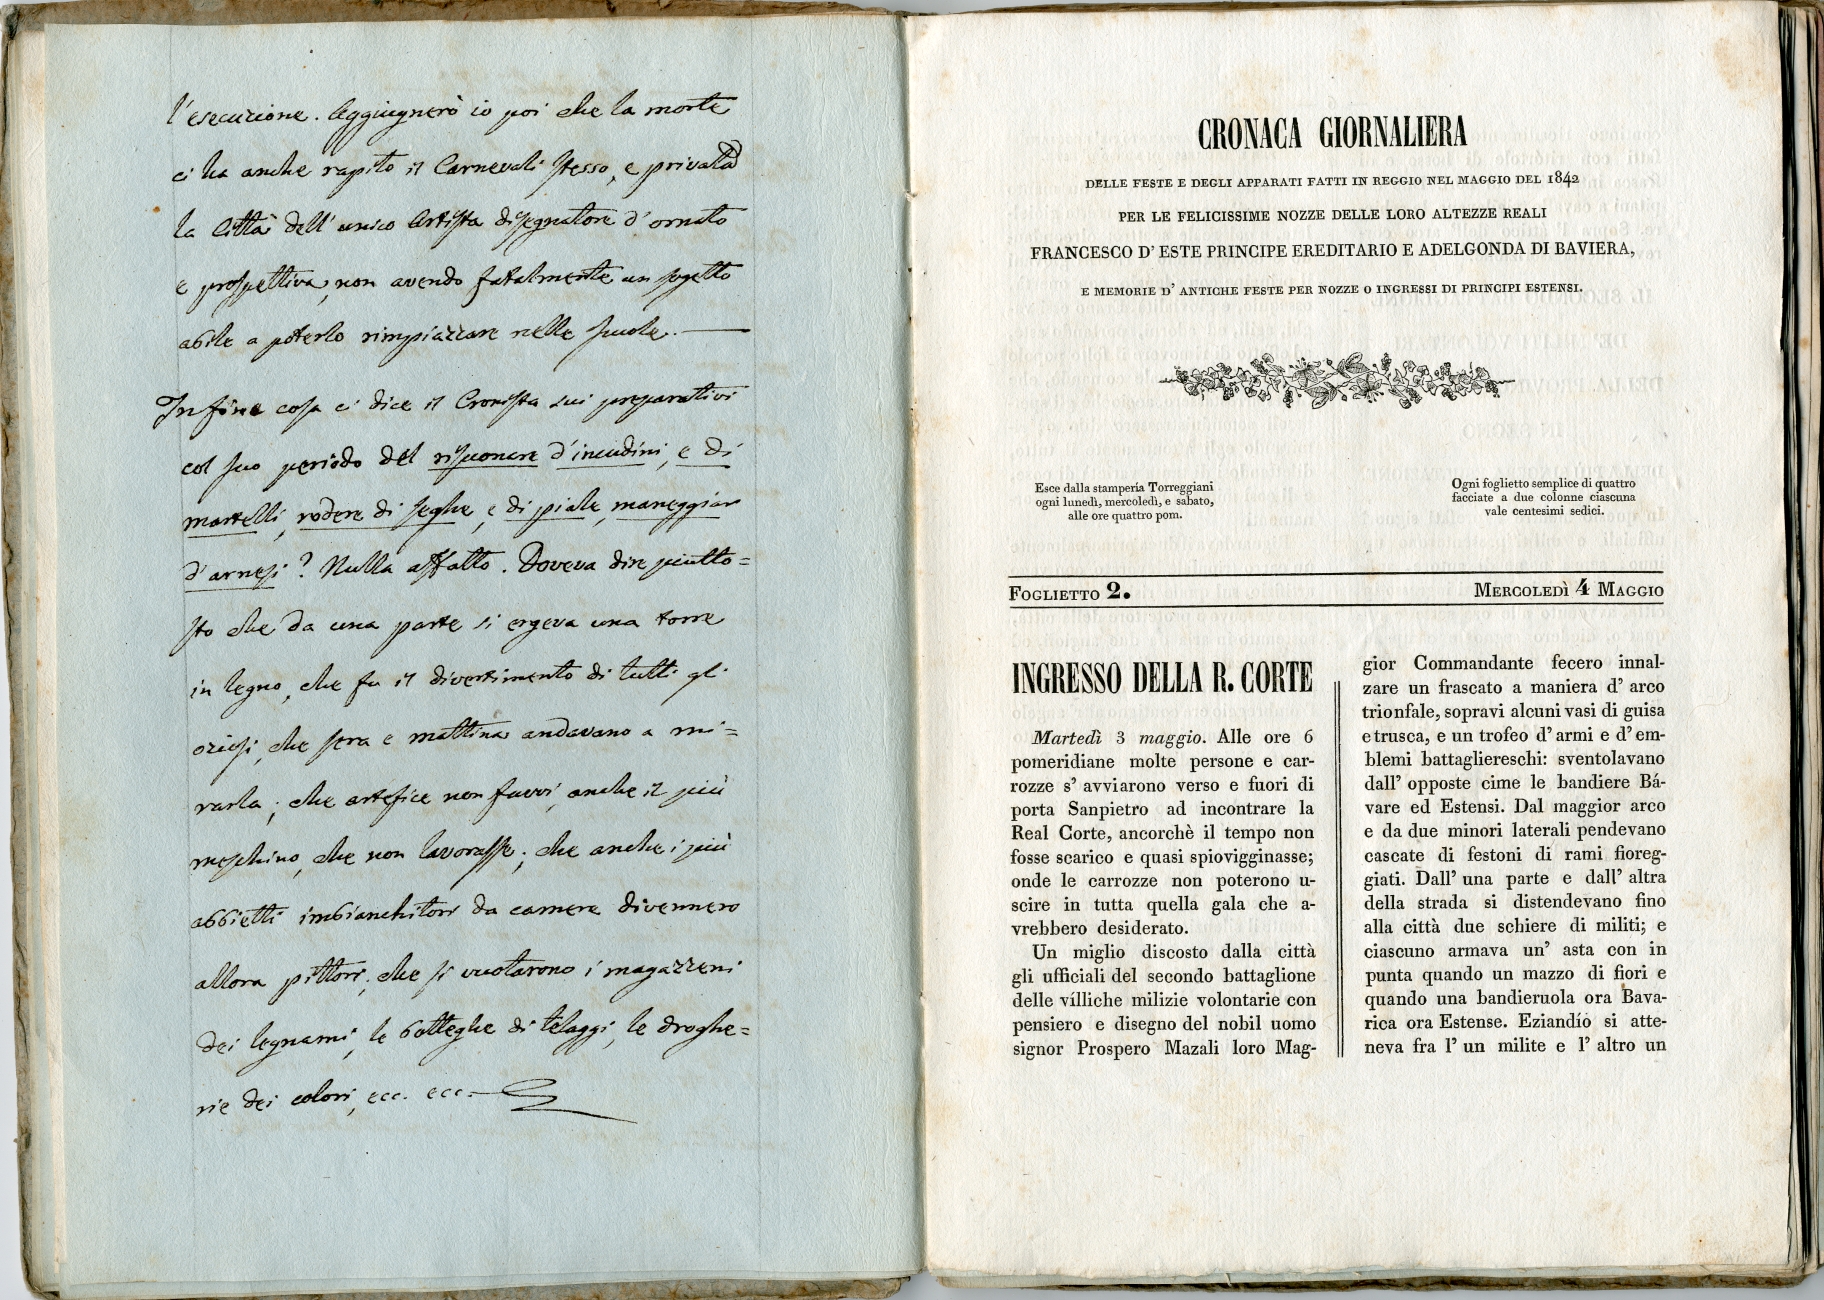 l'esecuzione. Aggiugnerò io poi che la morte
ci ha anche rapito il Carnevali stesso, e privata
la Città dell'unico Artista disegnatore d'ornato
e prospettiva, non avendo fatalmente un sogetto
abile a poterlo rimpiazzare nelle scuole. —
Infine cosa ci dice il Cronista sui preparativi
col suo periodo del risuonare d'incudini, e di
martelli, rodere di seghe, e di piale, maneggiar
d'arnesi? Nulla affatto. Doveva dire piutto=
sto che da una parte si ergeva una torre
in legno, che fu il divertimento di tutti gli
oziosi, che sera e mattina andavano a mi=
rarla; che artefice non fuvvi, anche il più
meschino, che non lavorasse; che anche i più
abbietti imbianchitori da camere divennero
allora pittori; che si vuotarono i magazzeni
dei legnami, le botteghe di telaggi, le droghe=
rie dei colori, ecc. ecc.
CRONACA GIORNALIERA
DELLE FESTE E DEGLI APPARATI FATTI IN REGGIO NEL MAGGIO DEL 1842
PER LE FELICISSIME NOZZE DELLE LORO ALTEZZE REALI
FRANCESCO D' ESTE PRINCIPE EREDITARIO E ADELGONDA DI BAVIERA,
E MEMORIE D' ANTICHE FESTE PER NOZZE O INGRESSI DI PRINCIPI ESTENSI.
Esce dalla stamperia Torreggiani
ogni lunedì, mercoledì, e sabato,
alle ore quattro pom.
Ogni foglietto semplice di quattro
facciate a due colonne ciascuna
vale centesimi sedici.
FOGLIETTO 2. MERCOLEDÌ 4 MAGGIO
INGRESSO DELLA R. CORTE
Martedì 3 maggio. Alle ore 6
pomeridiane molte persone e car-
rozze s' avviarono verso e fuori di
porta Sanpietro ad incontrare la
Real Corte, ancorchè il tempo non
fosse scarico e quasi spiovigginasse;
onde le carrozze non poterono u-
scire in tutta quella gala che a-
vrebbero desiderato.
Un miglio discosto dalla città
gli ufficiali del secondo battaglione
delle villiche milizie volontarie con
pensiero e disegno del nobil uomo
signor Prospero Mazali loro Mag-
gior Commandante fecero innal-
zare un frascato a maniera d' arco
trionfale, sopravi alcuni vasi di guisa
etrusca, e un trofeo d' armi e d' em-
blemi battagliereschi: sventolavano
dall' opposte cime le bandiere Bá-
vare ed Estensi. Dal maggior arco
e da due minori laterali pendevano
cascate di festoni di rami fioreg-
giati. Dall' una parte e dall' altra
della strada si distendevano fino
alla città due schiere di militi; e
ciascuno armava un' asta con in
punta quando un mazzo di fiori e
quando una bandieruola ora Bava-
rica ora Estense. Eziandío si atte-
neva fra l' un milite e l' altro un